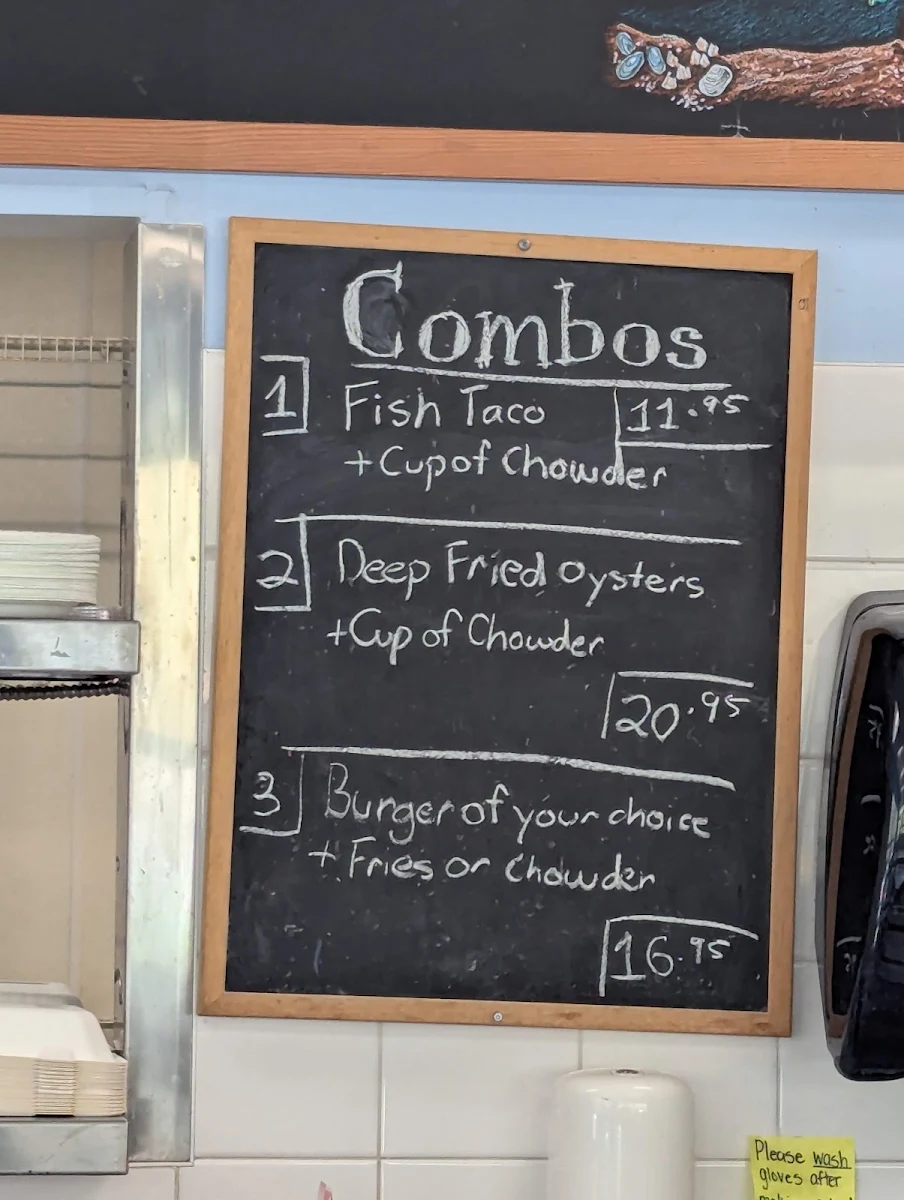 Combos
1 Fish Taco 11.95
+ Cup of Chowder
2 Deep Fried Oysters
+ Cup of Chowder
20.95
3 Burger of your choice
+ Fries or Chowder
16.95
Please wash
gloves after